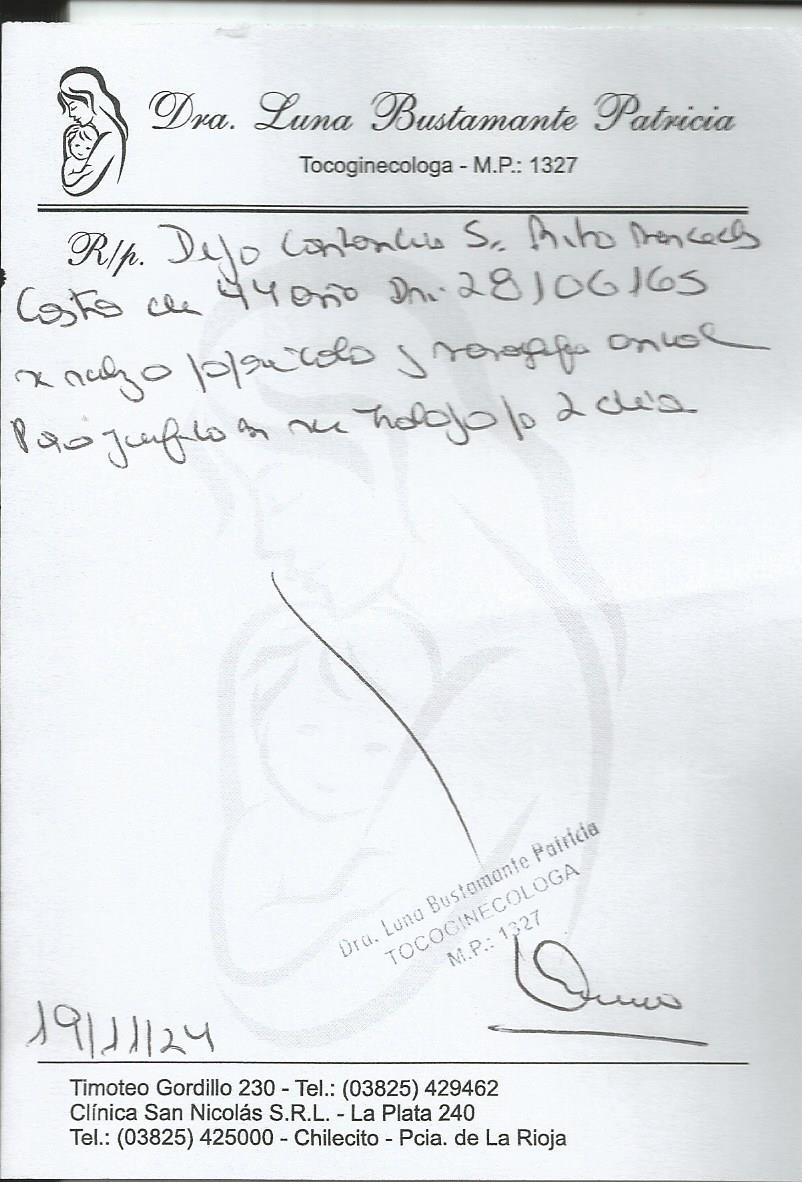 Dra. Luna Bustamante Patricia
Tocoginecologa - M.P.: 1327
R/p. Dejo Constancia
de 44 año Dni. 28106165
x y anual
Para en su trabajo p 2 día
Dra. Luna Bustamante Patricia
TOCOGINECOLOGA
M.P.: 1327
19/11/24
Timoteo Gordillo 230 - Tel.: (03825) 429462
Clínica San Nicolás S.R.L. - La Plata 240
Tel.: (03825) 425000 - Chilecito - Pcia. de La Rioja